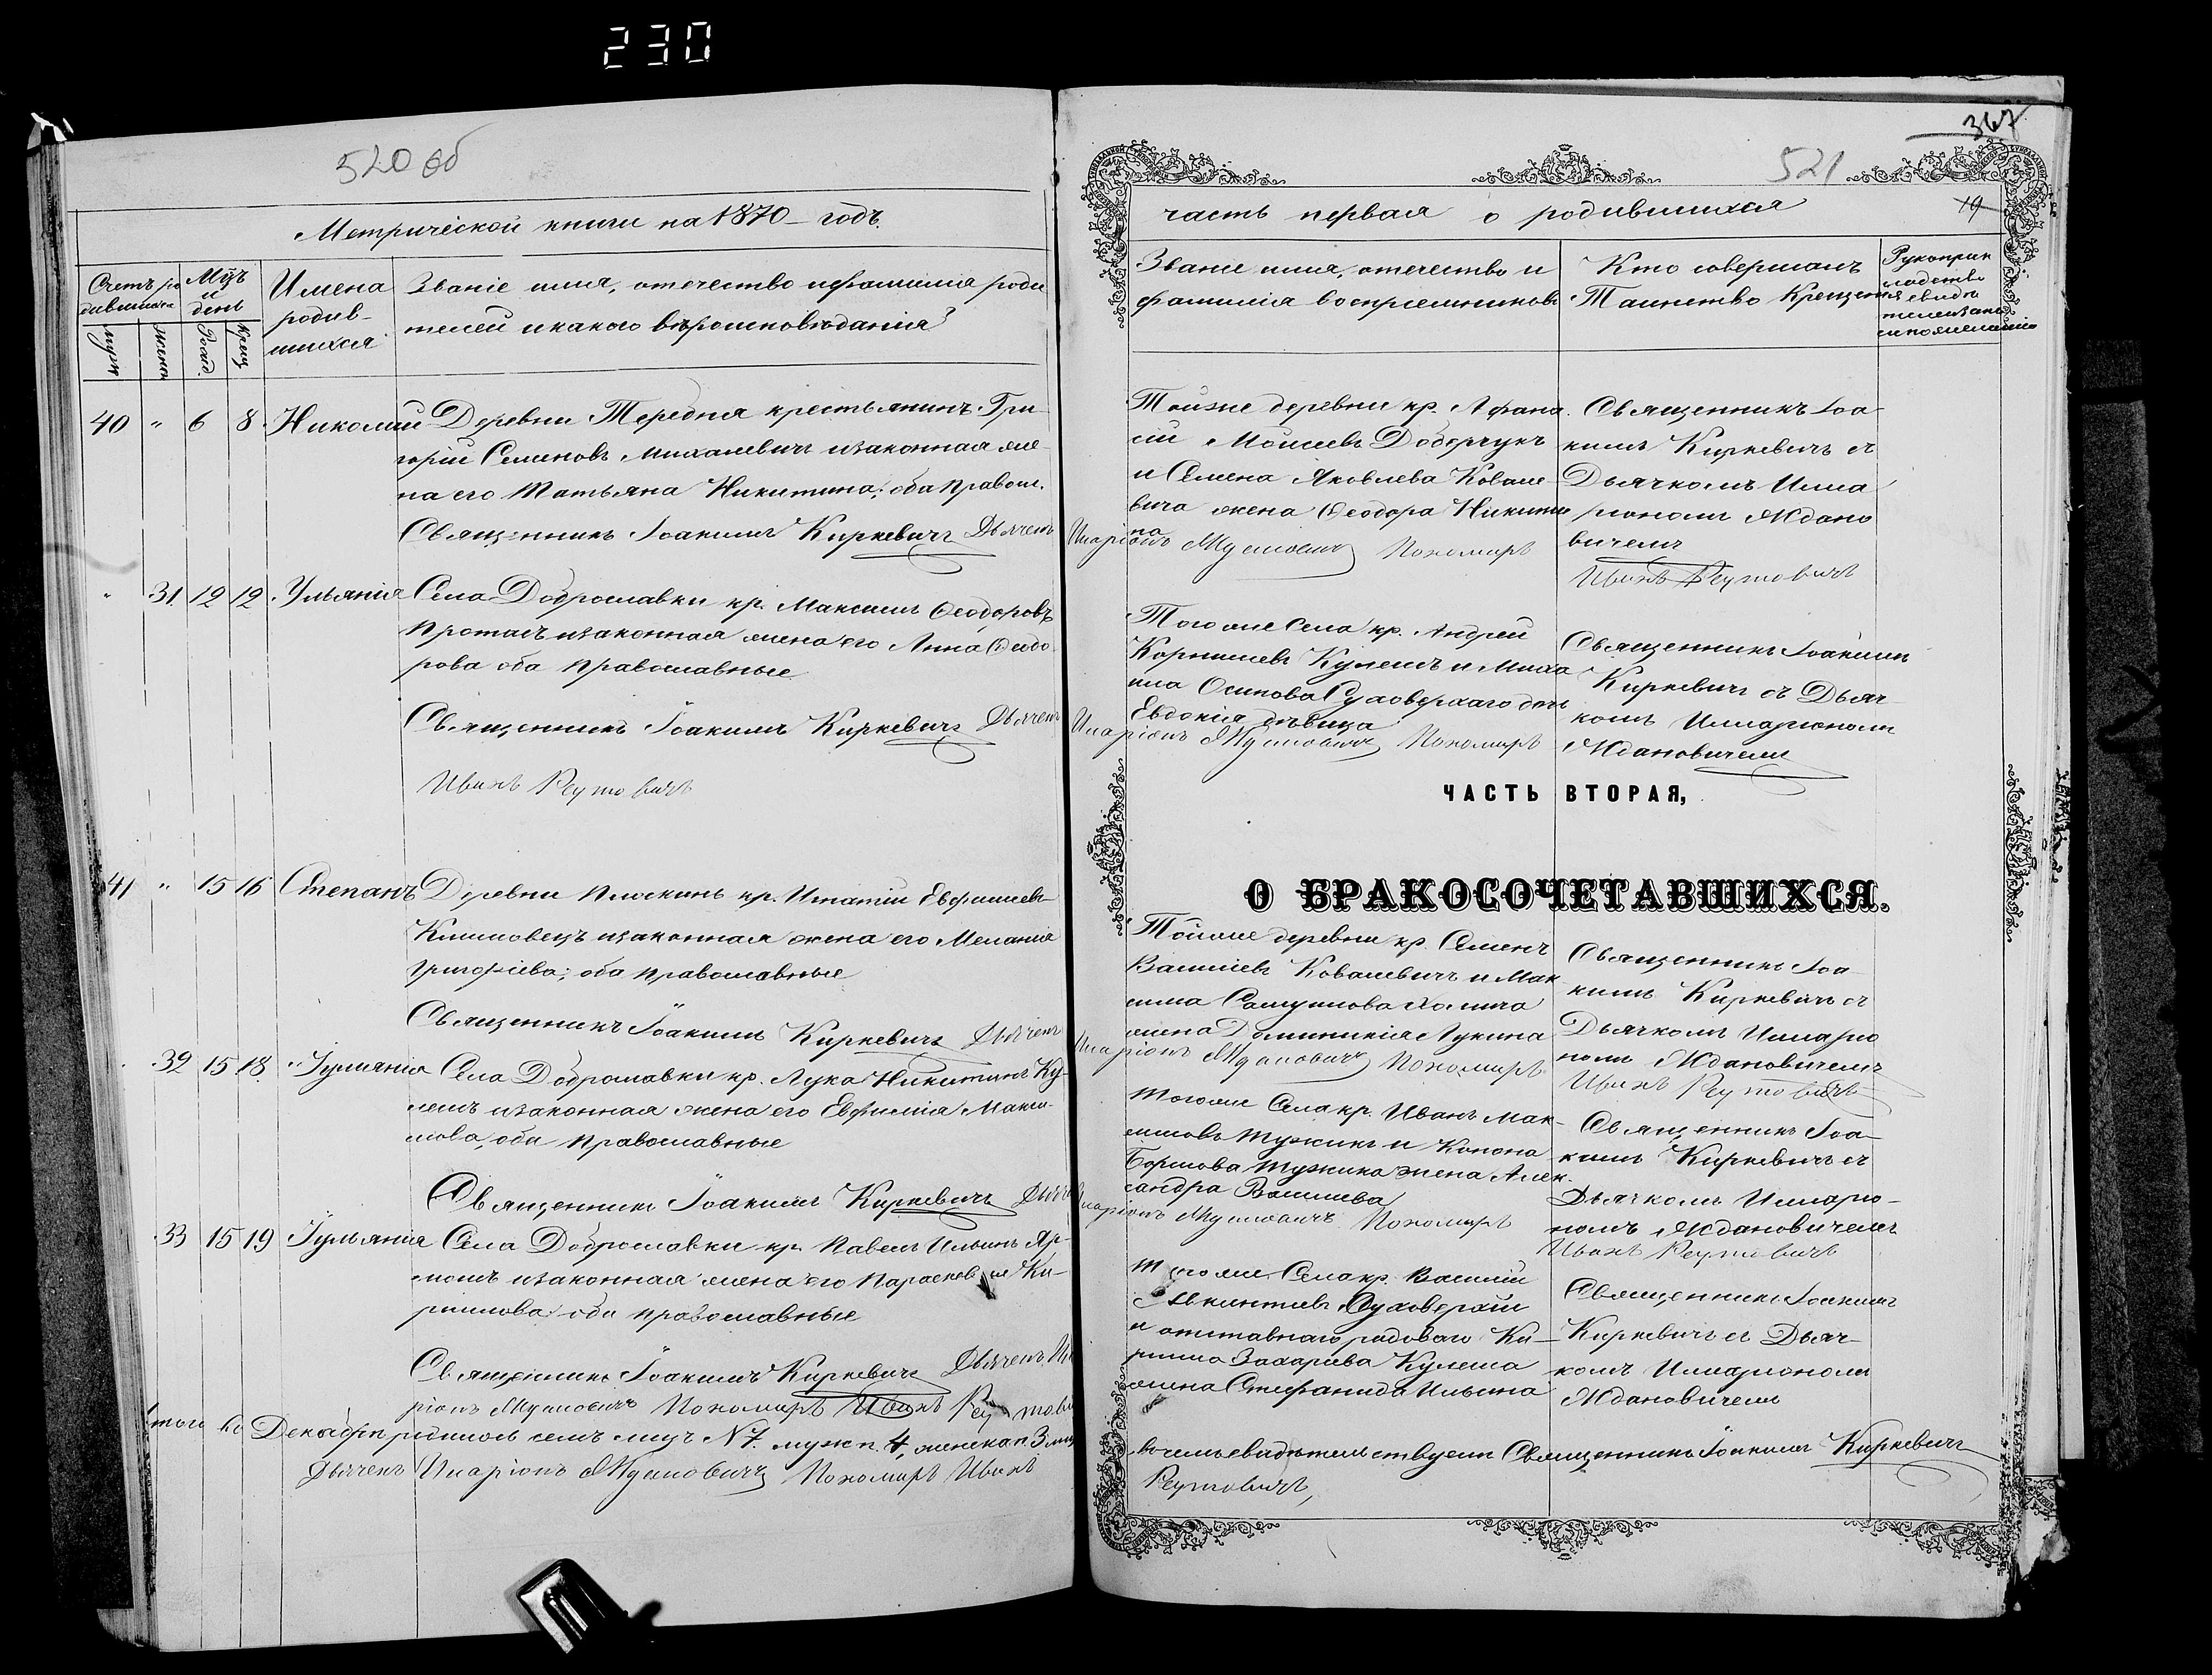 230
520 об
Метрической книги на 1870 годъ.
Счетъ ро
дившихся
Мцъ
и
день
Имена
родив-
шихся
Званіе имя, отчество и фамилія роди
телей и какого вѣроисповѣданія
муж
женск
Рожд.
Крещ
40 " 6 8 Николай Деревни Теребня крестьянинъ Гри-
горій Семеновъ Михалевичъ и законная же-
на его Татьяна Никитина; оба правосл.
Священникъ Іоакимъ Киркевичъ Дьячекъ
31 12 12 Ульянія Села Доброславки кр. Максимъ Ѳеодоровъ
Протасъ и законная жена его Анна Ѳеодо
рова оба православные
Священникъ Іоакимъ Киркевичъ Дьячекъ
Иванъ Реутовичъ
41 " 15 16 Степанъ Деревни Плоскинь кр. Игнатій Евфиміевъ
Климовецъ и законная жена его Меланія
Григоріева; оба православные
Священникъ Іоакимъ Киркевичъ Дьячекъ
32 15 18 Іуліанія Села Доброславки кр. Лука Никитинъ Ку-
лешъ и законная жена его Евфимія Макси-
мова, оба православные
Священникъ Іоакимъ Киркевичъ
33 15 19 Іульянія Села Доброславки кр. Павелъ Ильинъ Яр-
мошъ и законная жена его Параскевія Ки-
рилова оба православные
Священникъ Іоакимъ Киркевичъ Дьячекъ Ила
ріонъ Ждановичъ Пономарь Иванъ Реутови
Итого въ Декабрѣ родилось семь лицъ № 7. муж п. 4, женска п. 3 лица
Дьячекъ Иларіонъ Ждановичъ Пономарь Иванъ
367
521
часть первая о родившихся
19
Званіе имя, отечество и
фамилія воспріемниковъ
Кто совершалъ
Таинство Крещенія
Рукоприк
ладство
свидѣ
Тойже деревни кр. Афана
сій Моисеевъ Доборчукъ
и Семена Яковлева Ковале
вича жена Ѳеодора Никити
на
Иларіонъ Ждановичъ Пономарь
Священникъ Іоа
кимъ Киркевичъ съ
Дьячкомъ Илла
ріономъ Ждано
вичемъ
Иванъ Реутовичъ
Того же села кр. Андрей
Корниліевъ Кулешъ и Миха
ила Осипова Суховерхаго дочь
Евдокія дѣвица
Иларіонъ Ждановичъ Пономарь
Священникъ Іоакимъ
Киркевичъ съ Дьяч-
комъ Илларіономъ
Ждановичемъ
ЧАСТЬ ВТОРАЯ,
О БРАКОСОЧЕТАВШИХСЯ.
Тойже деревни кр. Семенъ
Василіевъ Ковалевичъ и Мак
сима Самуилова
жена Доминикія Лукина
Иларіонъ Ждановичъ Пономарь
Священникъ Іоа-
кимъ Киркевичъ съ
Дьячкомъ Илларіо
номъ Ждановичемъ
Иванъ Реутовичъ
Тогоже Села кр. Иванъ Мак-
симовъ Тужикъ и Конона
Борисова Тужика жена Алек-
сандра Василіева
Иларіонъ Ждановичъ Пономарь
Священникъ Іоа-
кимъ Киркевичъ съ
Дьячкомъ Илларіо-
номъ Ждановичемъ
Иванъ Реутовичъ
Тогоже Села кр. Василій
Суховерхій
и отставнаго рядоваго Ки-
рилла Захаріева Кулеша
жена Стефанида Ильина
Священникъ Іоакимъ
Киркевичъ съ Дьяч-
комъ Илларіономъ
Ждановичемъ
в чемъ свидѣтельствуетъ Священникъ Іоакимъ Киркевичъ
Реутовичъ,